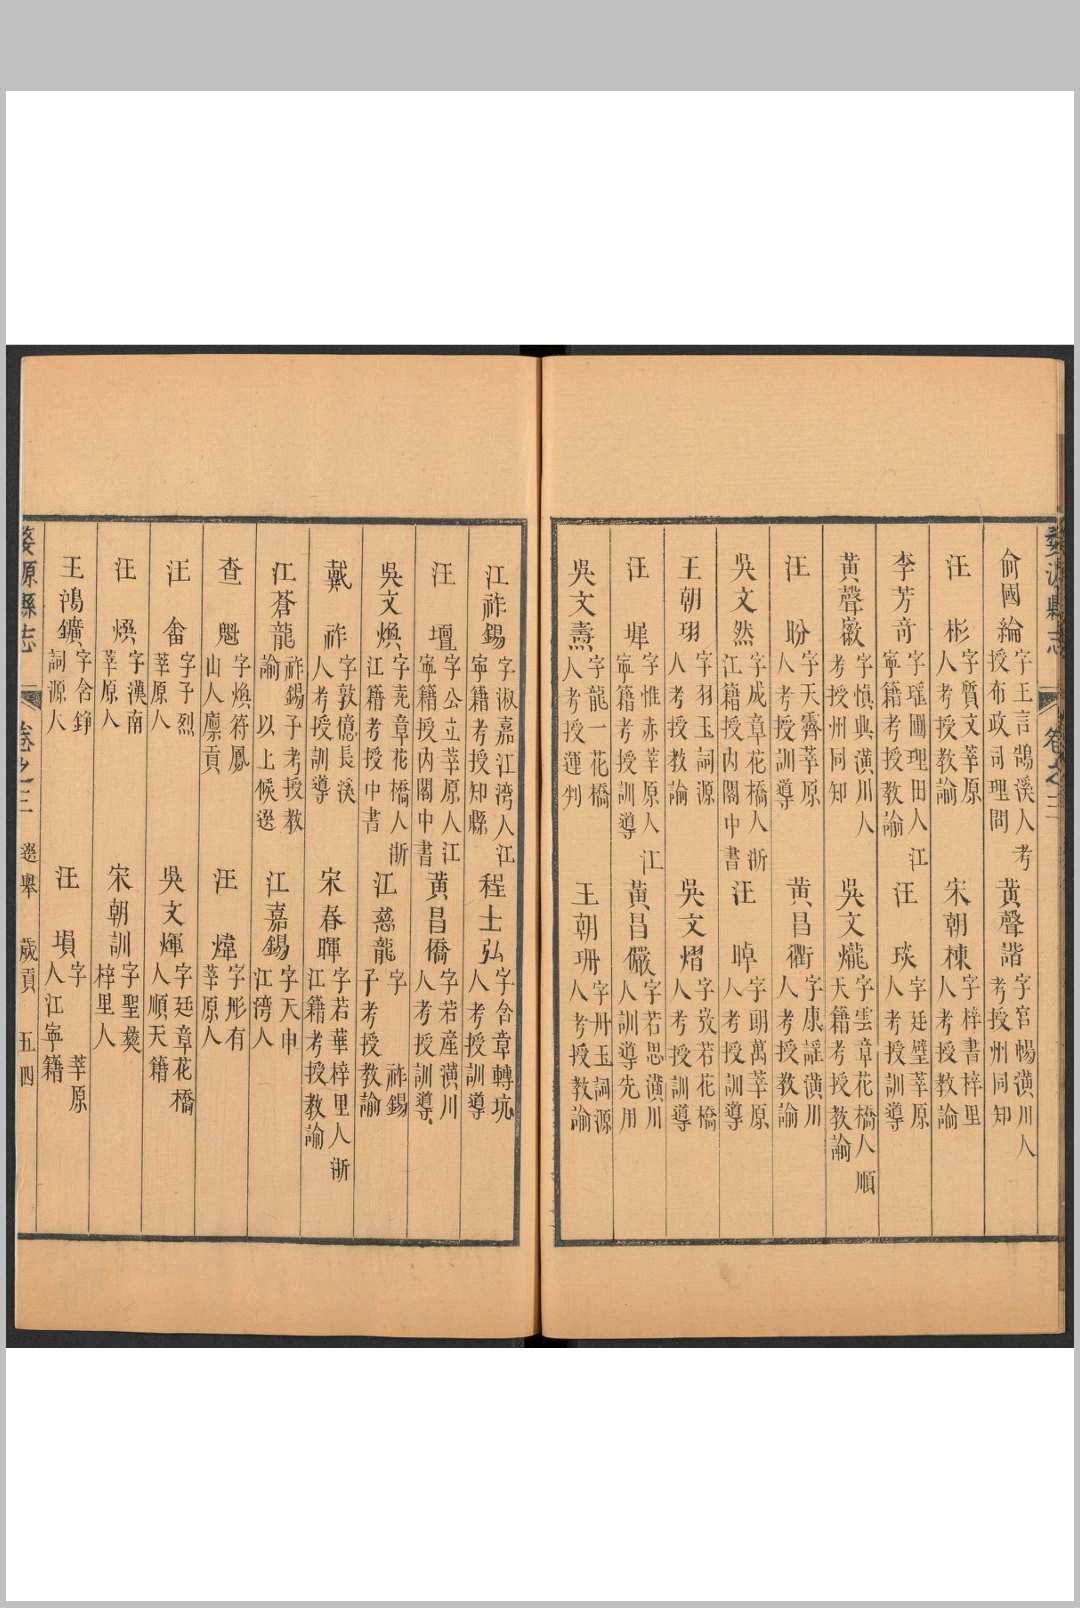 婺源縣志
卷之三
俞國綸 字王言鵠溪人考授布政司理問
黃聲諧 字宮暢潢川人考授州同知
汪彬 字質文莘原人考授教諭
宋朝棟 字梓書梓里人考授教諭
李芳奇 字瑤圃理田人江寧籍考授教諭
汪琰 字廷璧莘原人考授訓導
黃聲徽 字慎典潢川人考授州同知
吳文爖 字雲章花橋人順天籍考授教諭
汪盼 字天霽莘原人考授訓導
黃昌衢 字康謠潢川人考授教諭
吳文然 字成章花橋人浙江籍授內閣中書
汪晫 字朗萬莘原人考授訓導
王朝珝 字羽玉詞源人考授教諭
吳文熠 字若花橋人考授訓導
汪墀 字惟赤莘原人江寧籍考授訓導
黃昌儼 字若思潢川人訓導先用
吳文燾 字龍一花橋人考授運判
王朝珊 字卅玉詞源人考授教諭
江祚錫 字淑嘉江灣人江寧籍考授知縣
程士弘 字含章轉坑人考授訓導
汪壇 字公立莘原人江寧籍授內閣中書
黃昌僑 字若產潢川人考授訓導
吳文煥 字堯章花橋人浙江籍考授中書
江慈龍 字 祚錫子考授教諭
戴祚 字敦億長溪人考授訓導
宋春暉 字若華梓里人浙江籍考授教諭
江蒼龍 祚錫子考授教諭 以上候選
江嘉錫 字天申江灣人
查魁 字煥符鳳山人廪貢
汪煒 字彤有莘原人
汪畬 字子烈莘原人
吳文煇 字廷章花橋人順天籍
汪煐 字漢南莘原人
宋朝訓 字聖彝梓里人
王鴻鑛 字含錚詞源人
汪塤 字 莘原人江寧籍
婺源縣志
卷之三 選舉 歲貢 五四